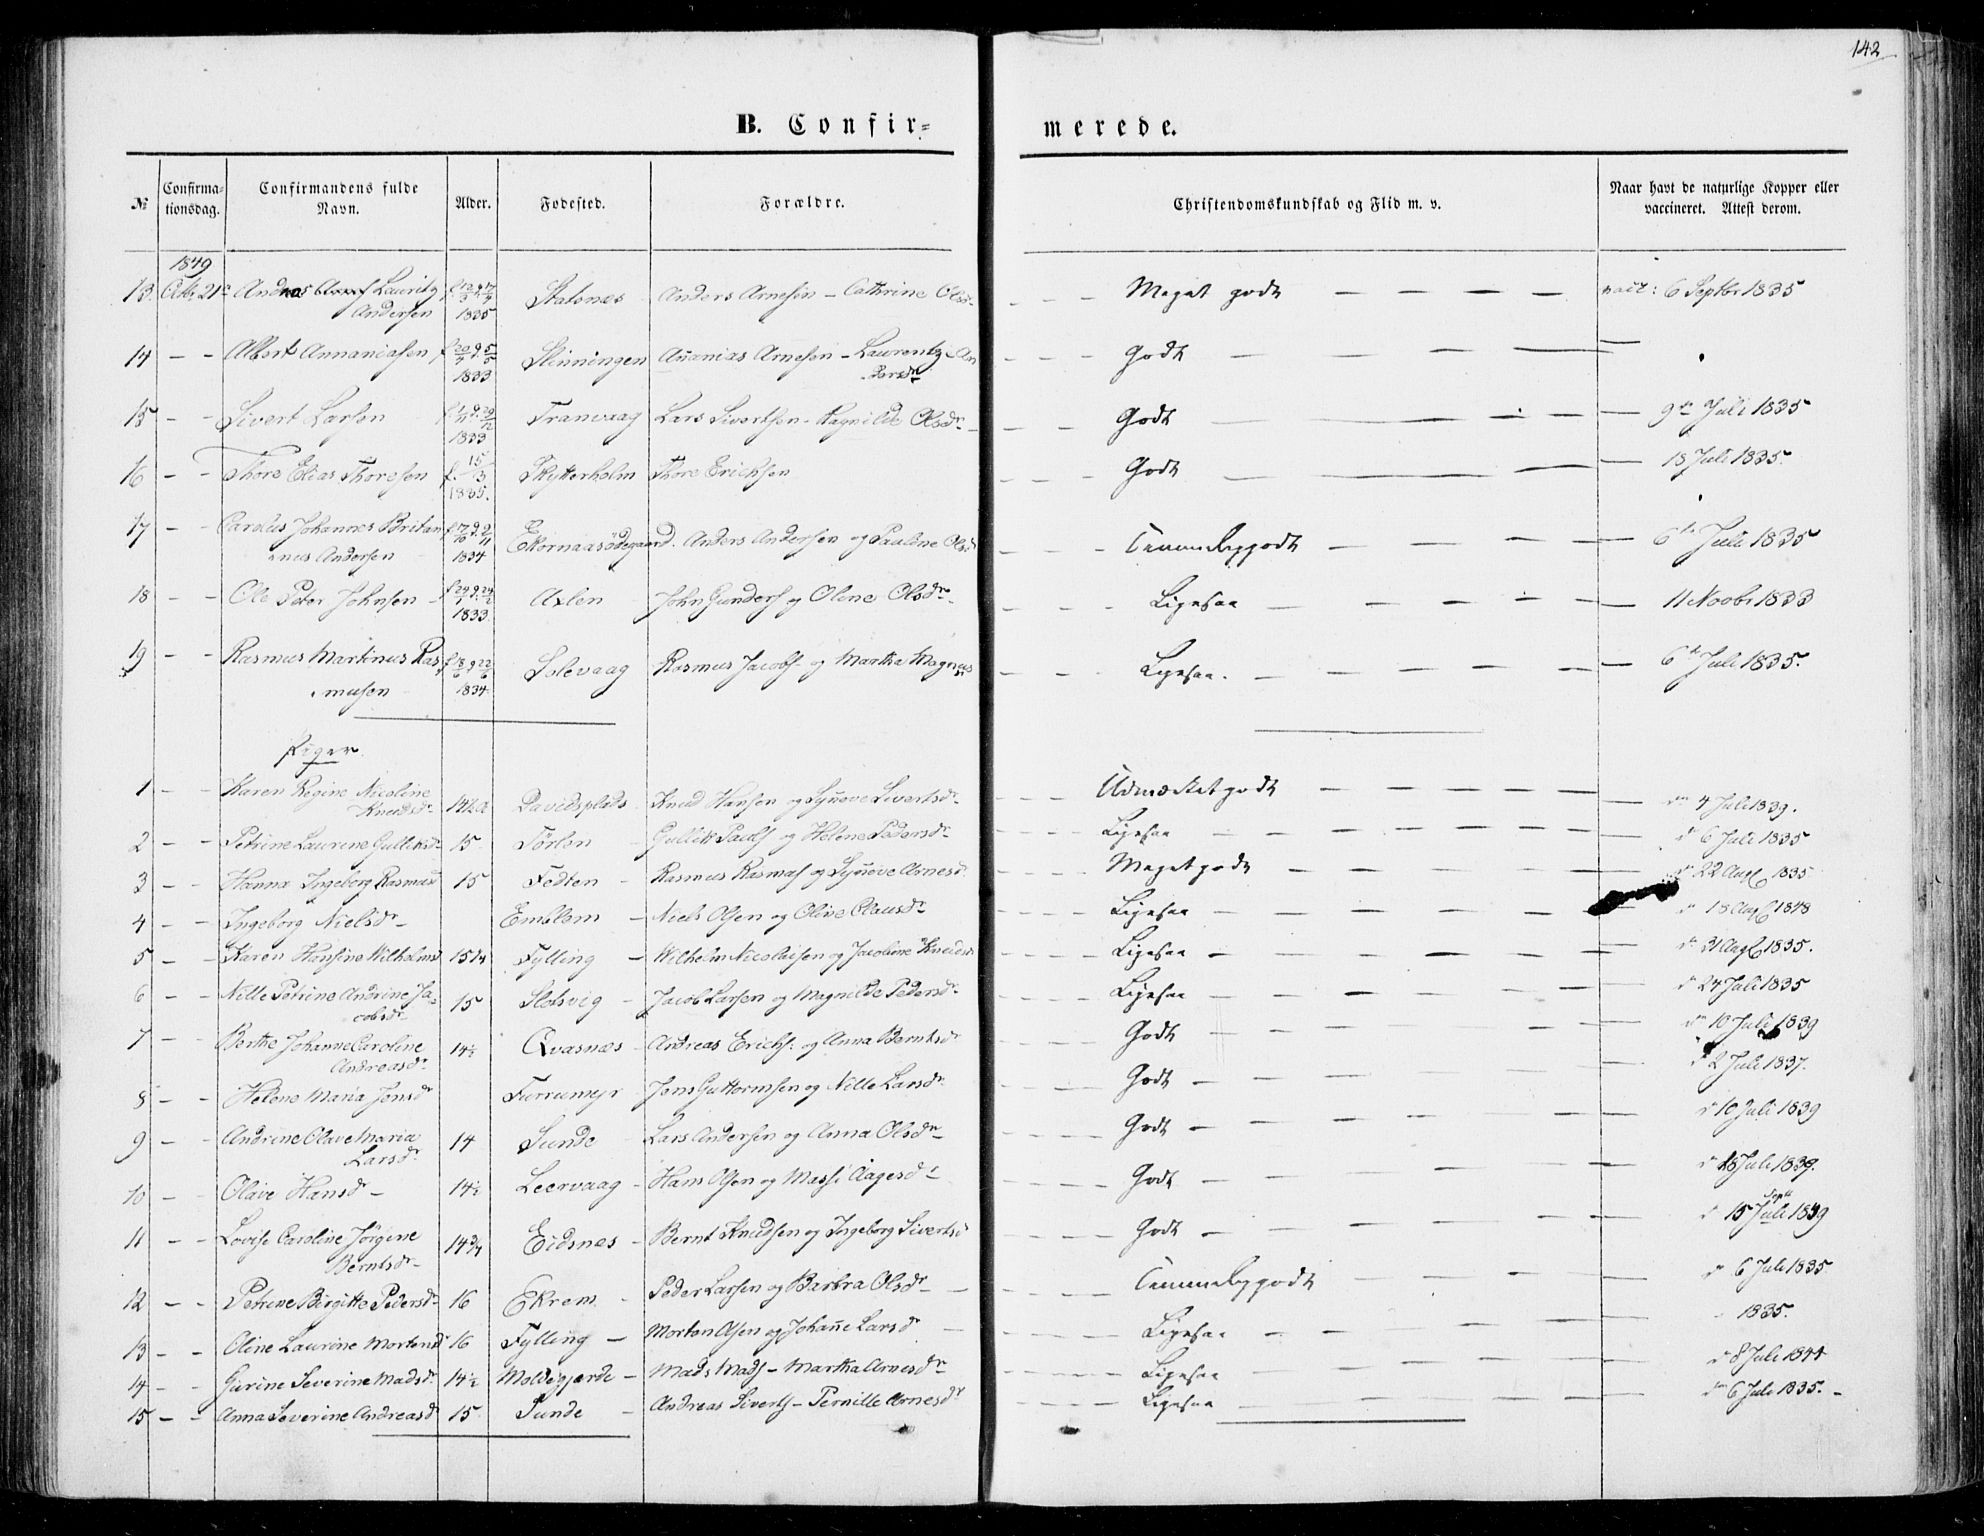 142
B. Confir-
merede.
№
Confirma-
tionsdag.
Confirmandens fulde
Navn.
Alder.
Fødested.
Forældre.
Christendomskundskab og Flid m. v.
Naar havt de naturlige Kopper eller
vaccineret. Attest derom.
1849
13. Octb. 21 Lauritz Statsnæs Anders Arnesen – Cathrine Olsdr Meget godt – – – – vacc: 6 Septbr 1835
Andersen 1835
14 – – Albert Annaniasen f 20/4 d. 5/5 Skinningen Ananias Arnesen – Laurentz
1833 Persdr Godt — — — —
15 – – Sivert Larsen Tranvaag Lars Sivertsen – Ragnilde Olsdr Godt — — 9de Juli 1835
1833
16 – – Thore Elias Thoresen f. 15/3 Skytterholm Thore Ericksen Godt — — — 18 Juli 1835.
1835.
17 – – Carolus Johannes Britan Ekornaasødegaard. Anders Andersen og Pauline Olsd Temmelig godt – – – – 6te Juli 1835
nus Andersen 1834
18 – – Ole Peter Johnsen Axlen John Gunders og Olene Olsdr Ligesaa – – – – 11 Novbr 1833
1833.
19 – – Rasmus Martinus Ras Solevaag Rasmus Jacobs – og Martha Magnus Ligesaa. – – – – 6te Juli 1835.
musen 1834
Piger
1 – – Karen Regine Nicoline
Knudsdr 14½ Davidsplads Knud Hansen og Synøve Sivertsdr Udmærket godt – – – – dn 4 Juli 1839.
2 – – Petrine Laurine Gulliksdr 15 Tørlen Gullik Pauls og Helene Pedersdr Ligesaa – – – – d 6 Juli 1835
3 – – Hanna Ingeborg Rasmusd 15 Fedten – Rasmus Rasmus og Synøve Arnesd Meget godt – – – – d 22 Aug 1835
4 – – Ingeborg Nielsdr – Emblem – Niels Olsen og Olive Clausdr Ligesaa – – – – d 18 Aug 1848
5 – – Karen Hansine Wilhelmsd 15¼ Fylling – Wilhelm Nicolaisen og Jacobine Knudsd Ligesaa – – – – dn 31 Aug 1835.
6 – – Nille Petrine Andrine Ja-
cobsdr 15 Slotsvig – Jacob Larsen og Magnilde Pedersdr Ligesaa – – – – d 24 Juli 1835
7 – – Berthe Johanne Caroline
Andreasdr 14½ Qvasnæs – Andreas Erichs: og Anna Berntsdr Godt – – – – dn 10 Juli 1839
8 – – Helene Maria Jensd Furrumyr – Jens Guttormsen og Nille Larsdr Godt – – – – d 2 Juli 1837.
9 – – Andrine Olave Maria
Larsdr 14 Sunde – Lars Andersen og Anna Olsdr Godt – – – – d 10 Juli 1839
10 – – Olave Hansdr – 14½ Leervaag – Hans Olsen og Massi Aagesdr Godt – – – – d 18 Juli 1839.
11 – – Lovise Caroline Jørgine
Berntsdr – 14¾ Eidsnes – Bernt Knudsen og Ingeborg Sivertsd Godt – – – – d 15 Juli Sept 1839
12 – – Petrine Birgitte Pedersdr 16 Ekrem – Peder Larsen og Barbra Olsdr – Temmelig godt – – – – d 6 Juli 1835
13 – – Oline Laurine Mortensd 16 Fylling – Morten Olsen og Johanne Larsd – Ligesaa – – – – 1835.
14 – – Gurine Severine Madsdr 14½ Moldegjærde – Mads Mads – Martha Arnesdr Ligesaa – – – – d 8 Juli 1844
15 – – Anna Severine Andreasd 15 Sunde – Andreas Siverts – Pernille Arnesdr Ligesaa – – – – dn 6 Juli 1835. –